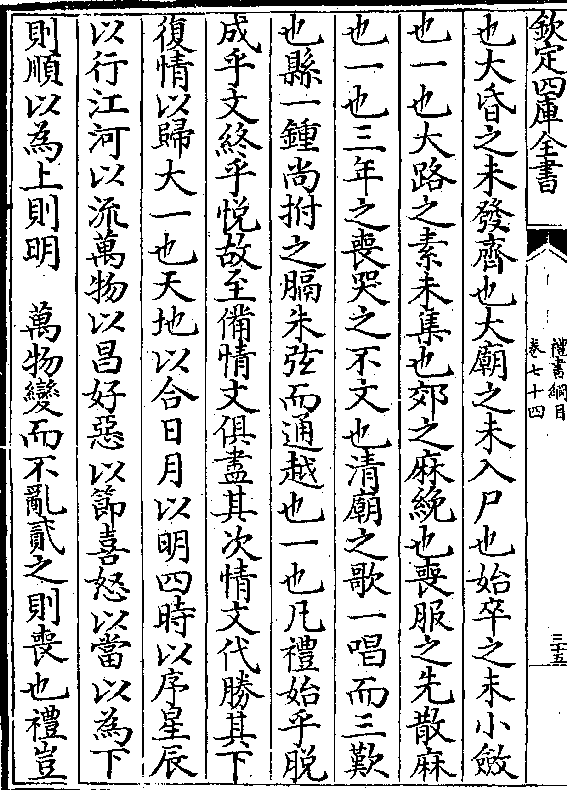 欽定四庫全書
禮書綱目
卷七十四
三十五
也大昏之未發齊也大廟之未入尸也始卒之未小斂
也一也大路之素未集也郊之麻絻也喪服之先散麻
也一也三年之喪哭之不文也清廟之歌一唱而三歎
也縣一鍾尚拊之膈朱弦而通越也一也凡禮始乎脱
成乎文終乎悦故至備情文俱盡其次情文代勝其下
復情以歸大一也天地以合日月以明四時以序星辰
以行江河以流萬物以昌好惡以節喜怒以當以為下
則順以為上則明　萬物變而不亂貳之則喪也禮豈